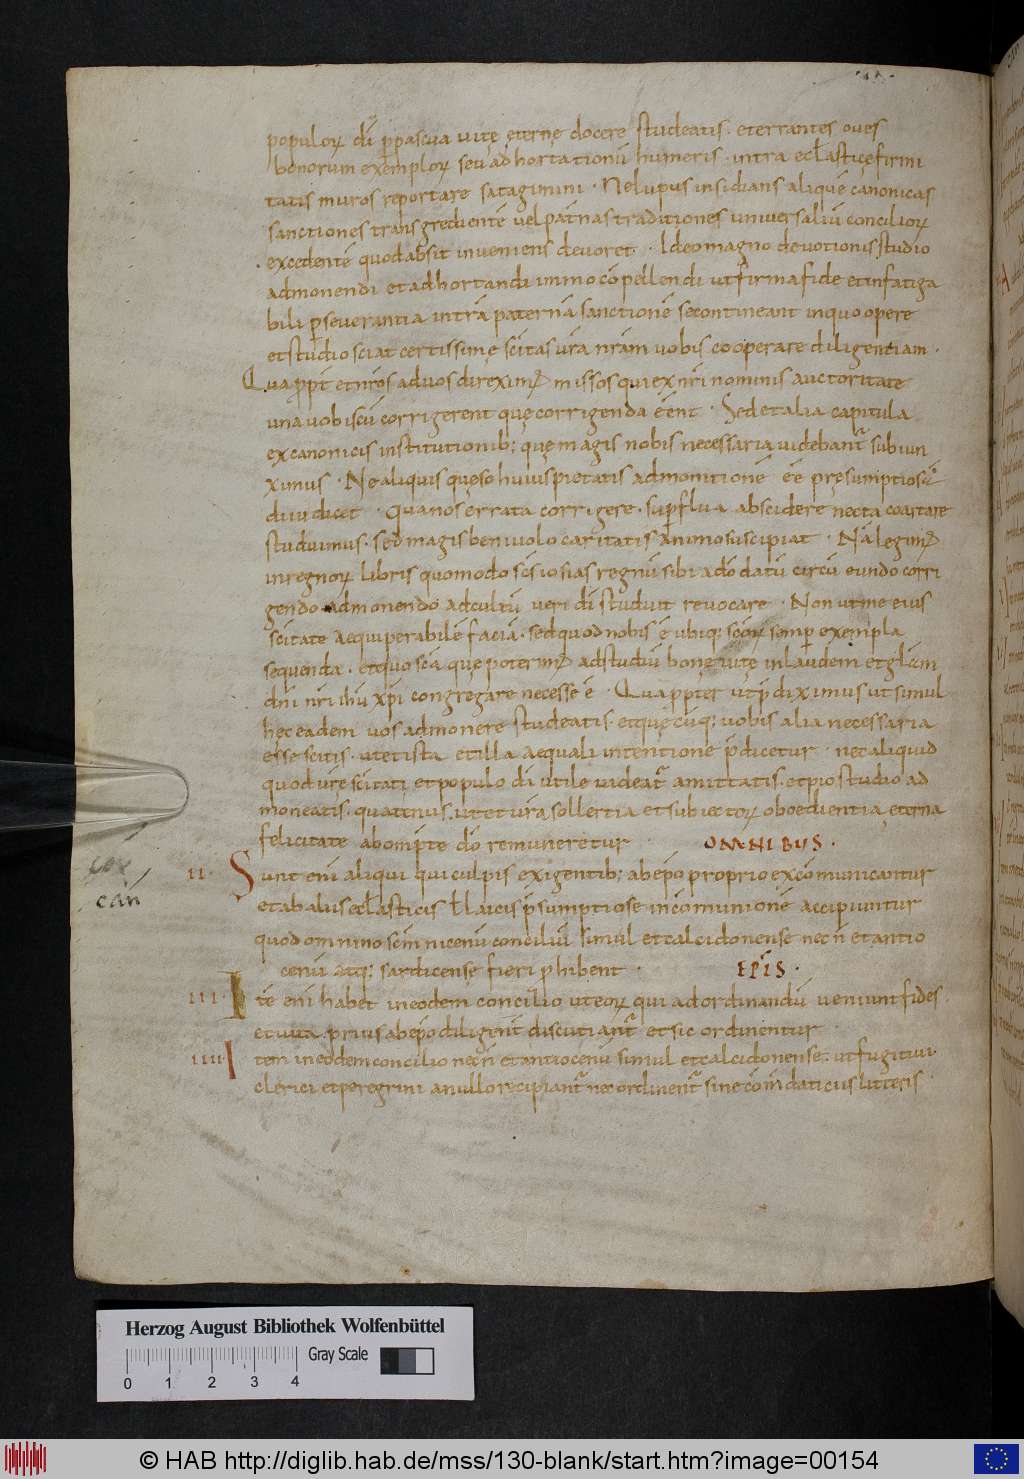 populoꝝ dī p pascua vitę ęternę docere studeatis · et errantes oves
bonorum exemploꝝ seu adhortationū humeris · intra eccłasticę firmi
tatis muros reportare satagimini · Ne lupus insidians aliquē canonicas
sanctiones transgredientē vel paťnas traditiones universaliū concilioꝝ
excedentē quod absit inveniens devoret · Ideo magno devotionis studio
admonendi et adhortandi immo cōpellendi ut firma fide et infatiga
bili pseverantia intrā paternā sanctionē se contineant in quo opere
et studio sciat certissime scitas vra nram vobis cooperare diligentiam ·
Quappt et nros ad vos direximꝰ missos qui ex nri nominis auctoritate
una vobiscū corrigerent quę corrigenda ēēnt · Sed et alia capitula
ex canonicis institutionib; quę magis nobis necessaria videbant subiun
ximus · Ne aliquis quęso huius pietatis admonitionē ēē presumptiosā
diiudicet · qua nos errata corrigere · supflua abscidere recta coartare
studuimus · sed magis benivolo caritatis animo suscipiat · Nā legimꝰ
in regnoꝝ libris quomodo scs iosias regnū sibi a dō datū circū eundo corri
gendo admonendo ad cultū veri dī studuit revocare · Non ut me eius
scitate aequiperabilē faciā · sed quod nobis ē ubiq; scōꝝ semp exempla
sequenda · et quoscūq; poterimꝰ ad studiū bonę vitę in laudem et glām
dni nri ihū xpi congregare necesse ē · Quappter ut pdiximus ut simul
hęc eadem vos admonere studeatis · et quęcūq; vobis alia necessaria
esse scitis · ut et ista et illa aequali intentione pdicetur · nec aliquid
quod vre scitati et populo dī utile videať amittatis · et pio studio ad
moneatis · quatenus ut et vra sollertia et subiectoꝝ oboedientia ęterna
felicitate ab ompte dō remuneretur · OMNIBUS ·
II · Sunt enī aliqui qui culpis exigentib; ab epo proprio excōmunicantur
cox
can
et ab aliis eccłasticis ł laicis psumptiose in cōmunionē accipiuntur
quod omnino scm nicenū conciliū simul et calcidonense necn̄ et antio
cenū atq; sardicense fieri phibent · EPIS ·
III · Itē enī habet in eodem concilio ut eoꝝ qui ad ordinandū veniunt fides
et vita prius ab epo diligent discutianť et sic ordinentur
IIII Item in eodem concilio necn̄ et antiocenū simul et calcidonense · ut fugitivi
clerici et peregrini a nullo recipianť nec ordinenť sine cōmdaticiis litteris ·
Herzog August Bibliothek Wolfenbüttel
Gray Scale
0 1 2 3 4
© HAB http://diglib.hab.de/mss/130-blank/start.htm?image=00154